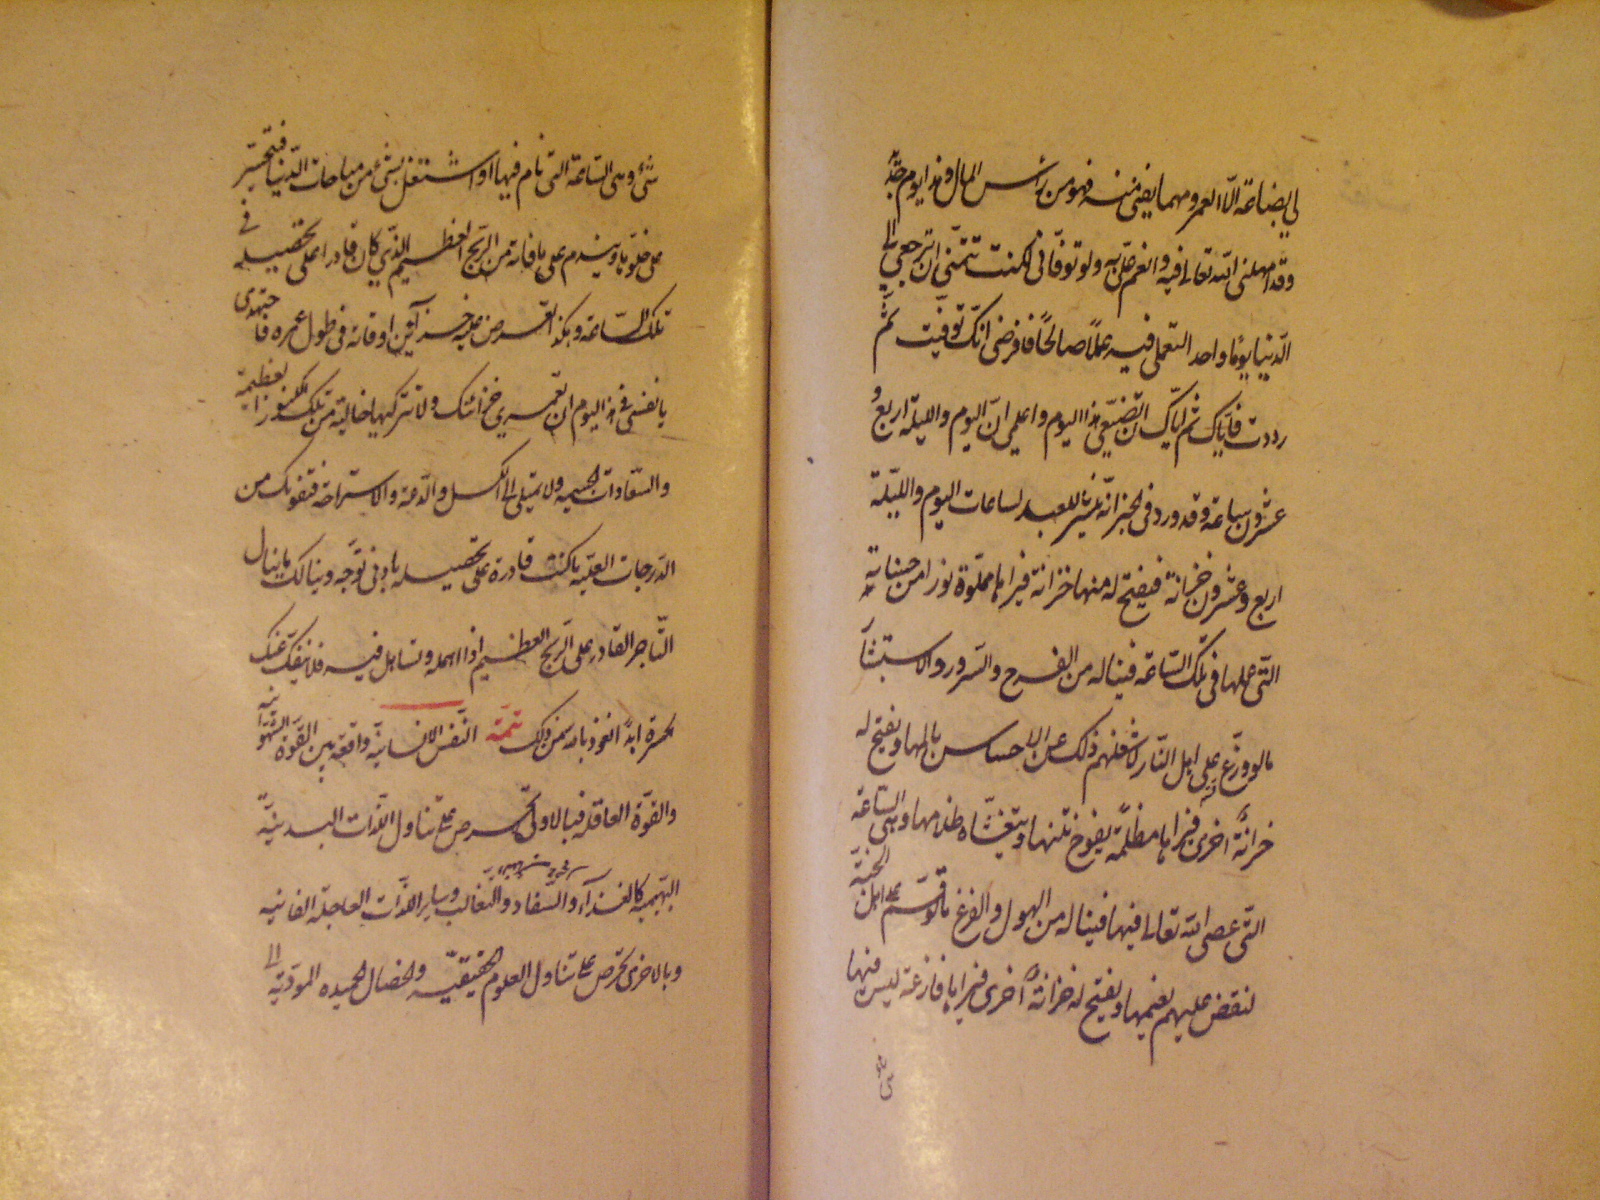 لي بضاعة الّا العمر ومهما يفنى منه فهو من رأس المال وهذا يوم جديد
وقد امهلنى الله تعالى فيه وانعم علىّ به ولو توفّانى لكنت تتمنّى ان ترجعى الى
الدّنيا يوما واحدا لتعملى فيه عملاً صالحًا فافرضى انّك توفّيت ثمّ
رددت فايّاك ثم ايّاك ان تضيّعى هذا اليوم واعلمى انّ اليوم والليلة اربع و
عشرون ساعة وقد ورد فى الخبر انّه ينشر للعبد لساعات اليوم والليلة
اربع وعشرون خزانة فيفتح له منها خزانة فيراها مملوة نورا من حسناته
التى عملها فى تلك السّاعة فيناله من الفرح والسّرور والاستبشار
ما لو وزّع على اهل النّار لاشغلهم ذلك عن الاحساس بالمها ويفتح له
خزانة اخرى فيراها مظلمة يفوح نتنها ويتغشّاه ظلامها وهى السّاعة
التى عصى الله تعالى فيها فيناله من الهول والفزع ما لو قسّم على اهل الجنّة
لنقض عليهم نعيمها ويفتح له خزانة اخرى فيراها فارغة ليس فيها
شئ وهى السّاعة التى نام فيها او اشتغل بشئ من مباحات الدّنيا فيتحسّر
على خلوّها ويندم على ما فاته من الرّبح العظيم الذّى كان قادرا على تحصيله فى
تلك السّاعة وهكذا تعرض عليه خزآئن اوقاته فى طول عمره فاجتهدى
يا نفسى فى هذا اليوم ان تعمرى خزائنك ولا تتركيها خالية من تلك الكنوز العظيمة
والسّعادات الجسيمه ولا تميلى الى الكسل والدّعة والاستراحة فتفوتك من
الدّرجات العليّه ما كنت قادرة على تحصيله بادنى توجّه وينالك ما ينال
التّاجر القادر على الرّبح العظيم اذا اهمله وتساهل فيه فلا ينفكّ عنك
حسرة ابدًا نعوذ بالله من ذلك تتمّة النّفس الانسانيّة واقعة بين القوّة الشّهوانيه
والقوّة العاقله فبالاولى تحرص على تناول اللّذّات البدنيّة
البهيميه كالغذآء والسّفاد والتّغالب وساير اللّذّات العاجلة الفانيه
وبالاخرى تحرص على تناول العلوم الحقيقيّه والخصال الحميده المودّية الى